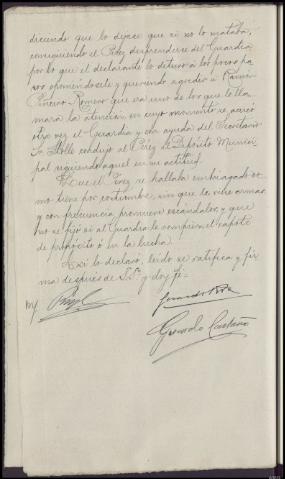 diciendo que lo dejase que si no lo mataba,
consiguiendo el Pérez desprenderse del Guardia
por lo que el declarante lo detuvo a los pocos pa
sos oponiéndosele y queriendo agredir a
Romero que era uno de los que lo lla
maba la atención, en cuyo momento se acercó
otra vez el Guardia y con ayuda del Secretario
Sr. condujo al Pérez al Depósito Munici
pal siguiendo aquel en su actitud.
Que el Pérez se hallaba embriagado co
mo tiene por costumbre, sin que le viese armas
y con frecuencia promueve escándalos, y que
no se fijó si al Guardia le rompiera el capote
de propósito ó en la lucha.
Así lo declaró, leído se ratifica y fir
ma después de S.Sª y doy fe=
Gerardo
Castaño